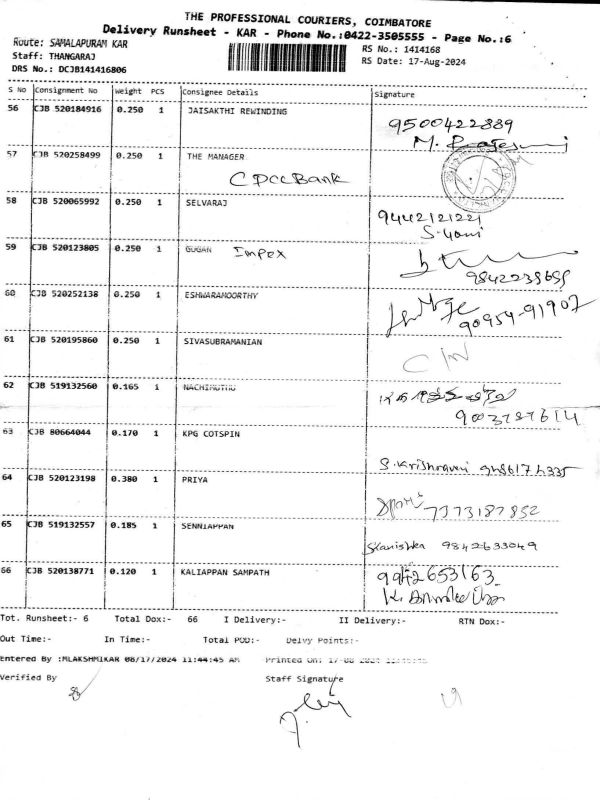 THE PROFESSIONAL COURIERS, COIMBATORE
Delivery Runsheet - KAR - Phone No.:0422-3505555 - Page No.:6
Route: SAMALAPURAM KAR
RS No.: 1414168
Staff: THANGARAJ
RS Date: 17-Aug-2024
DRS No.: DCJB141416806
S No Consignment No Weight PCS Consignee Details Signature
56 CJB 520184916 0.250 1 JAISAKTHI REWINDING 9500422889
M.
57 CJB 520258499 0.250 1 THE MANAGER
CDCC Bank
58 CJB 520065992 0.250 1 SELVARAJ 9442121221
59 CJB 520123805 0.250 1 GUGAN Impex
60 CJB 520252138 0.250 1 ESHWARAMOORTHY 90954-91907
61 CJB 520195860 0.250 1 SIVASUBRAMANIAN
62 CJB 519132560 0.165 1 NACHIMUTHU
63 CJB 80664044 0.170 1 KPG COTSPIN
64 CJB 520123198 0.380 1 PRIYA 7373187852
65 CJB 519132557 0.185 1 SENNIAPPAN
9842633049
66 CJB 520138771 0.120 1 KALIAPPAN SAMPATH 9942653163
Tot. Runsheet:- 6 Total Dox:- 66 I Delivery:- II Delivery:- RTN Dox:-
Out Time:- In Time:- Total POD:- Delvy Points:-
Entered By :MLAKSHMIKAR 08/17/2024 11:44:45 AM Printed On: 17-08-2024
Verified By Staff Signature